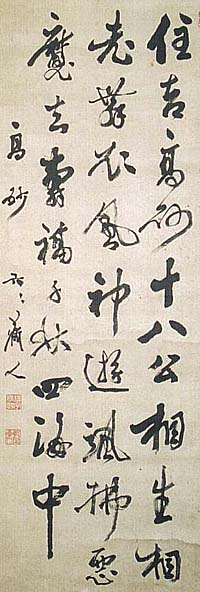 住吉高砂十八公相生相
老舞衣風神遊颯拂悪
魔去壽福千秋四海中
高砂